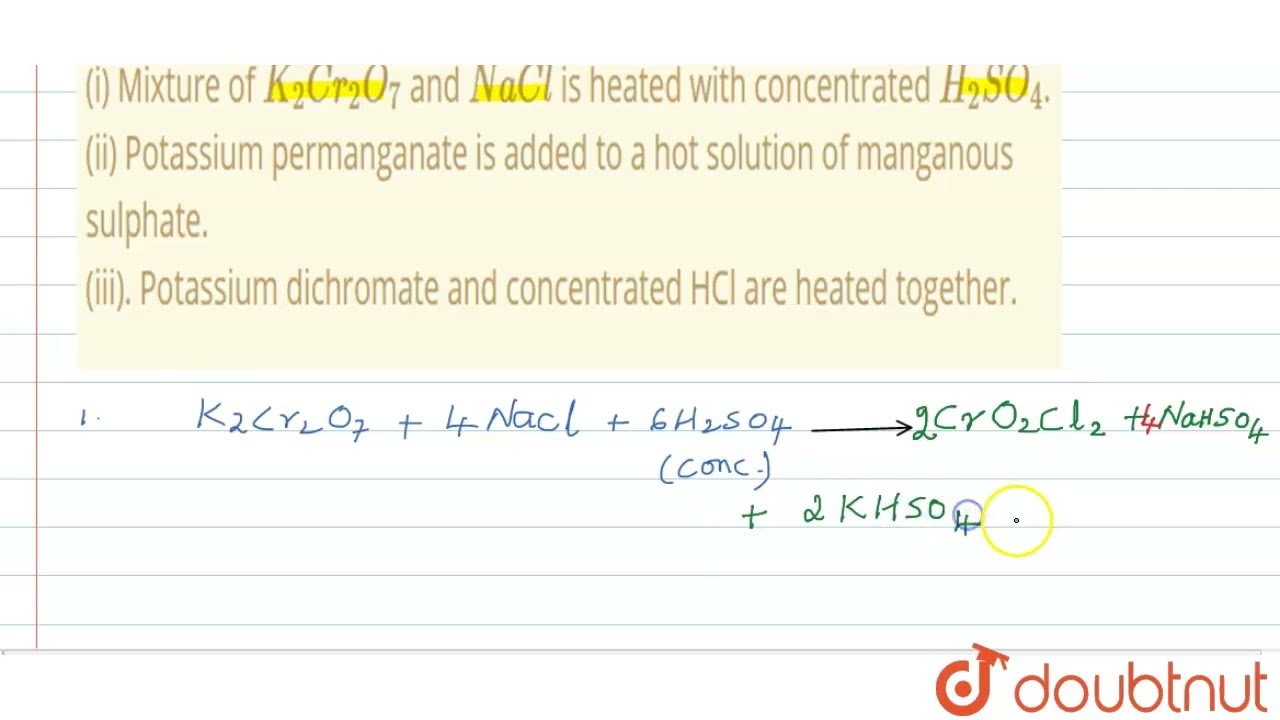 (i) Mixture of K₂Cr₂O₇ and NaCl is heated with concentrated H₂SO₄.
(ii) Potassium permanganate is added to a hot solution of manganous
sulphate.
(iii). Potassium dichromate and concentrated HCl are heated together.
1. K₂Cr₂O₇ + 4NaCl + 6H₂SO₄ ⟶ 2CrO₂Cl₂ + 4NaHSO₄
(conc.)
+ 2KHSO₄
doubtnut